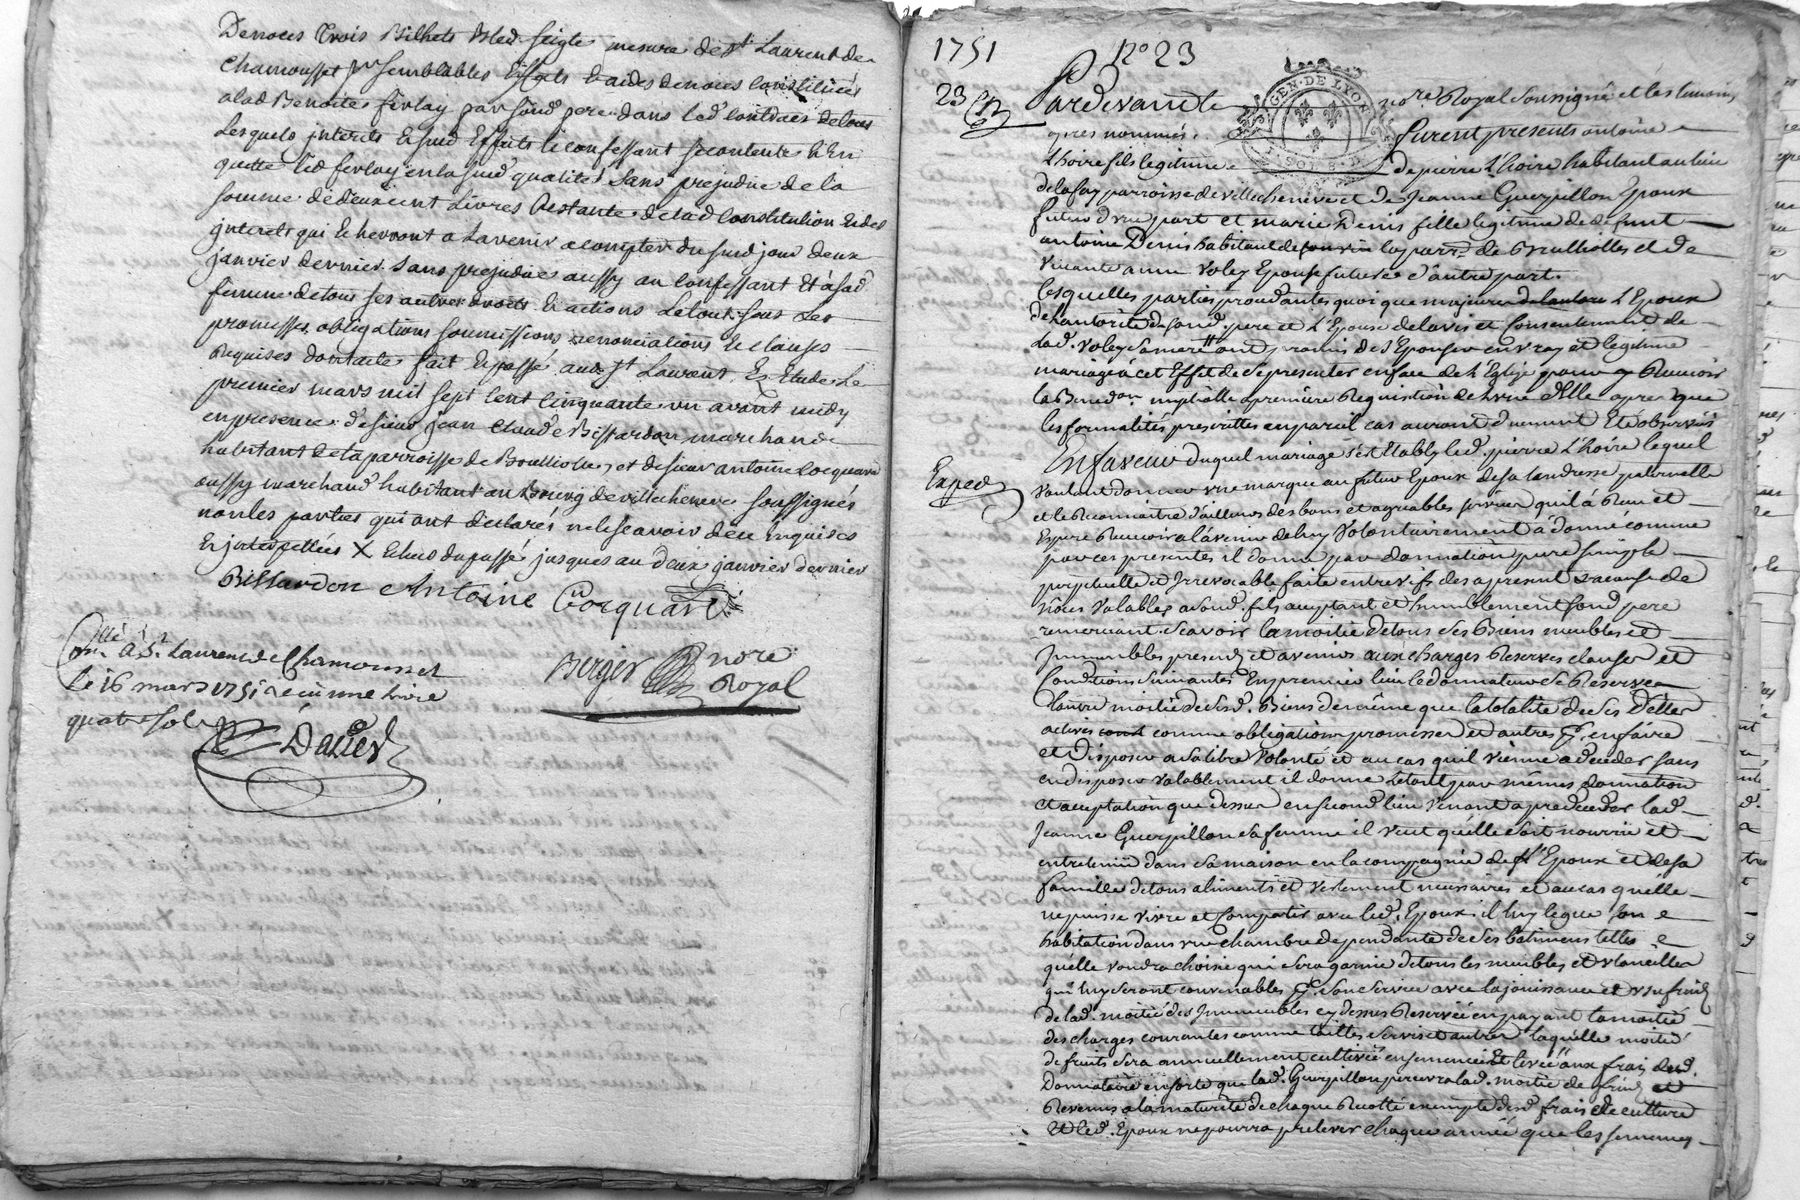 Denoces trois Bilhets Bled seigle mesure de st Laurent de
Chamousset pr semblables Effets traides denoces Constitués
alad Benoite ferlay par sond pere dans led Contract de leur
Lesquels jnterets Et sud Effets le confessant se contente Et En
quitte led ferlay en la sud qualité Sans prejudice de la
somme de deux cent Livres Restante de lad Constitution Et des
jnterets qui Echerront a Lavenir a compter du sud jour deux
janvier dernier sans prejudice aussy au confessant Et à sad
femme de tous ses autres droits Et actions Le tout sous Les
promesses obligations soumissions renonciations Et clauses
Requises dont acte fait Et passé aud st Laurent Ez Etude Le
premier mars mil sept Cent Cinquante un avant midy
en presence de sieur jean Claude Bissardon marchand
habitant de la parroisse de Brullioles et de sieur antoine Cocquard
aussy marchand habitant au Bourg de villecheneve soussignés
non les parties qui ont déclarés ne le scavoir de ce Enquises
Et jnterpellées X Echus du passé jusques au deux janvier dernier
Bissardon Antoine Cocquard
Collé
Con. a St. Laurent de Chamousset
Le 16 mars 1751 recu une livre
quatre sols
Dacier
Berger nore
Royal
1751 No 23
23
GEN. DE LYON
Pardevant le nore Royal soussigné et les temoins
apres nommés. furent presents antoine
L'hoire fils legitime de pierre L'hoire habitant au lieu
de la fay parroisse de villecheneve et de Jeanne Guerpillon Epoux
futur d'vne part et marie Denis fille legitime de defunt
antoine Denis habitant de son vivant la parr. de Brullioles et de
vivante anne Voley Epouse future d'autre part.
Lesquelles parties procedantes quoi que majeures de l'autor L'Epoux
de l'autorité de sond. pere et l'Epouse de l'avis et Consentement de
lad. Voley sa mere ont promis de s'Epouser en vray et legitime
mariage à cet Effet de se presenter en face de l'Eglise pour y Recevoir
la Bened.on nuptialle a premiere Requisition de l'vne d'Elle apres que
les formalités prescrittes en pareil cas auront duement Eté observées
Exped
En faveur duquel mariage s'est Etably led. pierre L'hoire lequel
voulant donner vne marque au futur Epoux de sa tendresse paternelle
et le Reconnoitre d'ailleurs des bons et agreables services qu'il à Recu et
Espere Recevoir à l'avenir de luy Volontairement à donné comme
par ces presentes il donne par donnation pure simple
perpetuelle et Irrevocable faite entre vifs des apresent a cause de
nôces Valables a sond. fils acceptant et humblement sond pere
remerciant. Scavoir la moitié de tous ses Biens meubles et
Immeubles presents et avenir aux charges Reserves clauses et
Conditions suivantes. En premier lieu le donnateur se Reserve
l'autre moitié de sesd. Biens de même que la totalité de ses dettes
actives comme obligations promesses et autres pr. en faire
et disposer a sa libre Volonté et au cas qu'il vienne a deceder sans
en disposer valablement il donne le tout par mêmes donnation
et acceptation que dessus en second lieu venant a predeceder lad.
Jeanne Guerpillon sa femme il veut qu'elle soit nourrie et
entretenue dans sa maison en la compagnie du fr Epoux et de sa
famille de tous aliments et vestement necessaires et au cas qu'elle
ne puisse vivre et Compatir avec led. Epoux il luy legue son
habitation dans vne chambre dependante de ses bâtiments telles
qu'elle voudra choisir qui sera garnie de tous les meubles et vtancilles
qui luy seront convenables pr. s'en servir avec la jouissance et vsufruit
de lad. moitié des Immeubles cy dessus Reservée en payant la moitié
des charges courantes comme tailles servis et autres laquelle moitié
de fruits sera annuellement cultivée ensemencée et levée aux frais dud.
Donnataire en sorte que lad. Guerpillon percevra lad. moitié de fruits et
Revenus a la maturité de chaque Recolte exempte desd. frais de culture
Et led. Epoux ne pourra prelever chaque année que les semences